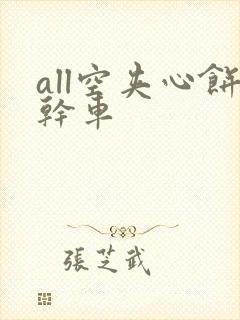 all空夹心餅
幹車
張芝武